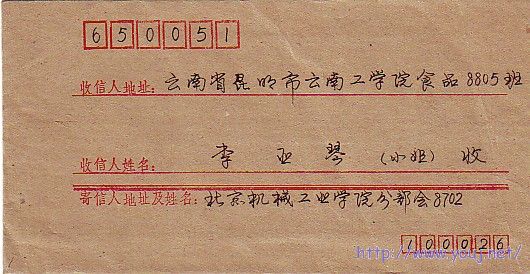 650051
收信人地址:云南省昆明市云南工学院食品8805班
收信人姓名:李亚琴(小姐)收
寄信人地址及姓名:北京机械工业学院分部会8702
100026
http://www.youj.net/